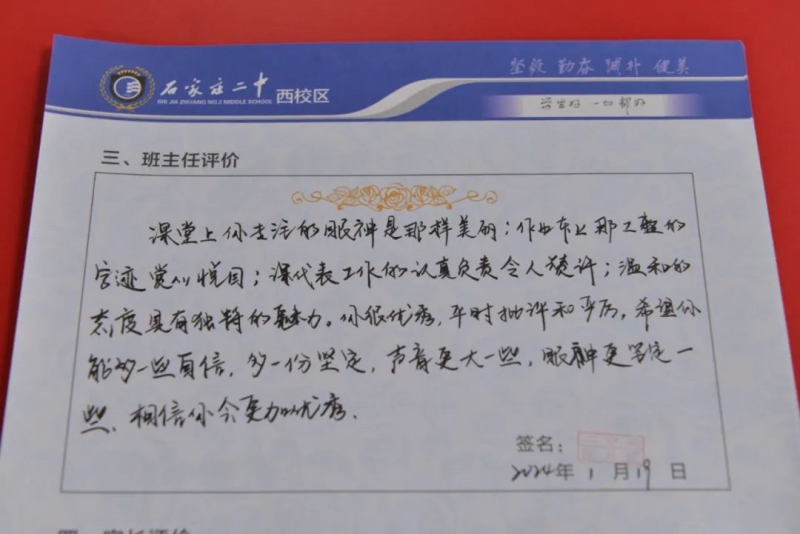 坚毅 勤奋 诚朴 健美
石家庄二中 西校区
SHI JIA ZHUANG NO.2 MIDDLE SCHOOL
学生好 一切都好
三、班主任评价
课堂上你专注的眼神是那样美丽；作业本上那工整的
字迹赏心悦目；课代表工作的认真负责令人赞许；温和的
态度具有独特的魅力。你很优秀，平时批评和严厉，希望你
能够多一些自信，多一份坚定，声音更大一些，眼神更坚定一
些，相信你会更加优秀。
签名：
2024年 1 月 19 日